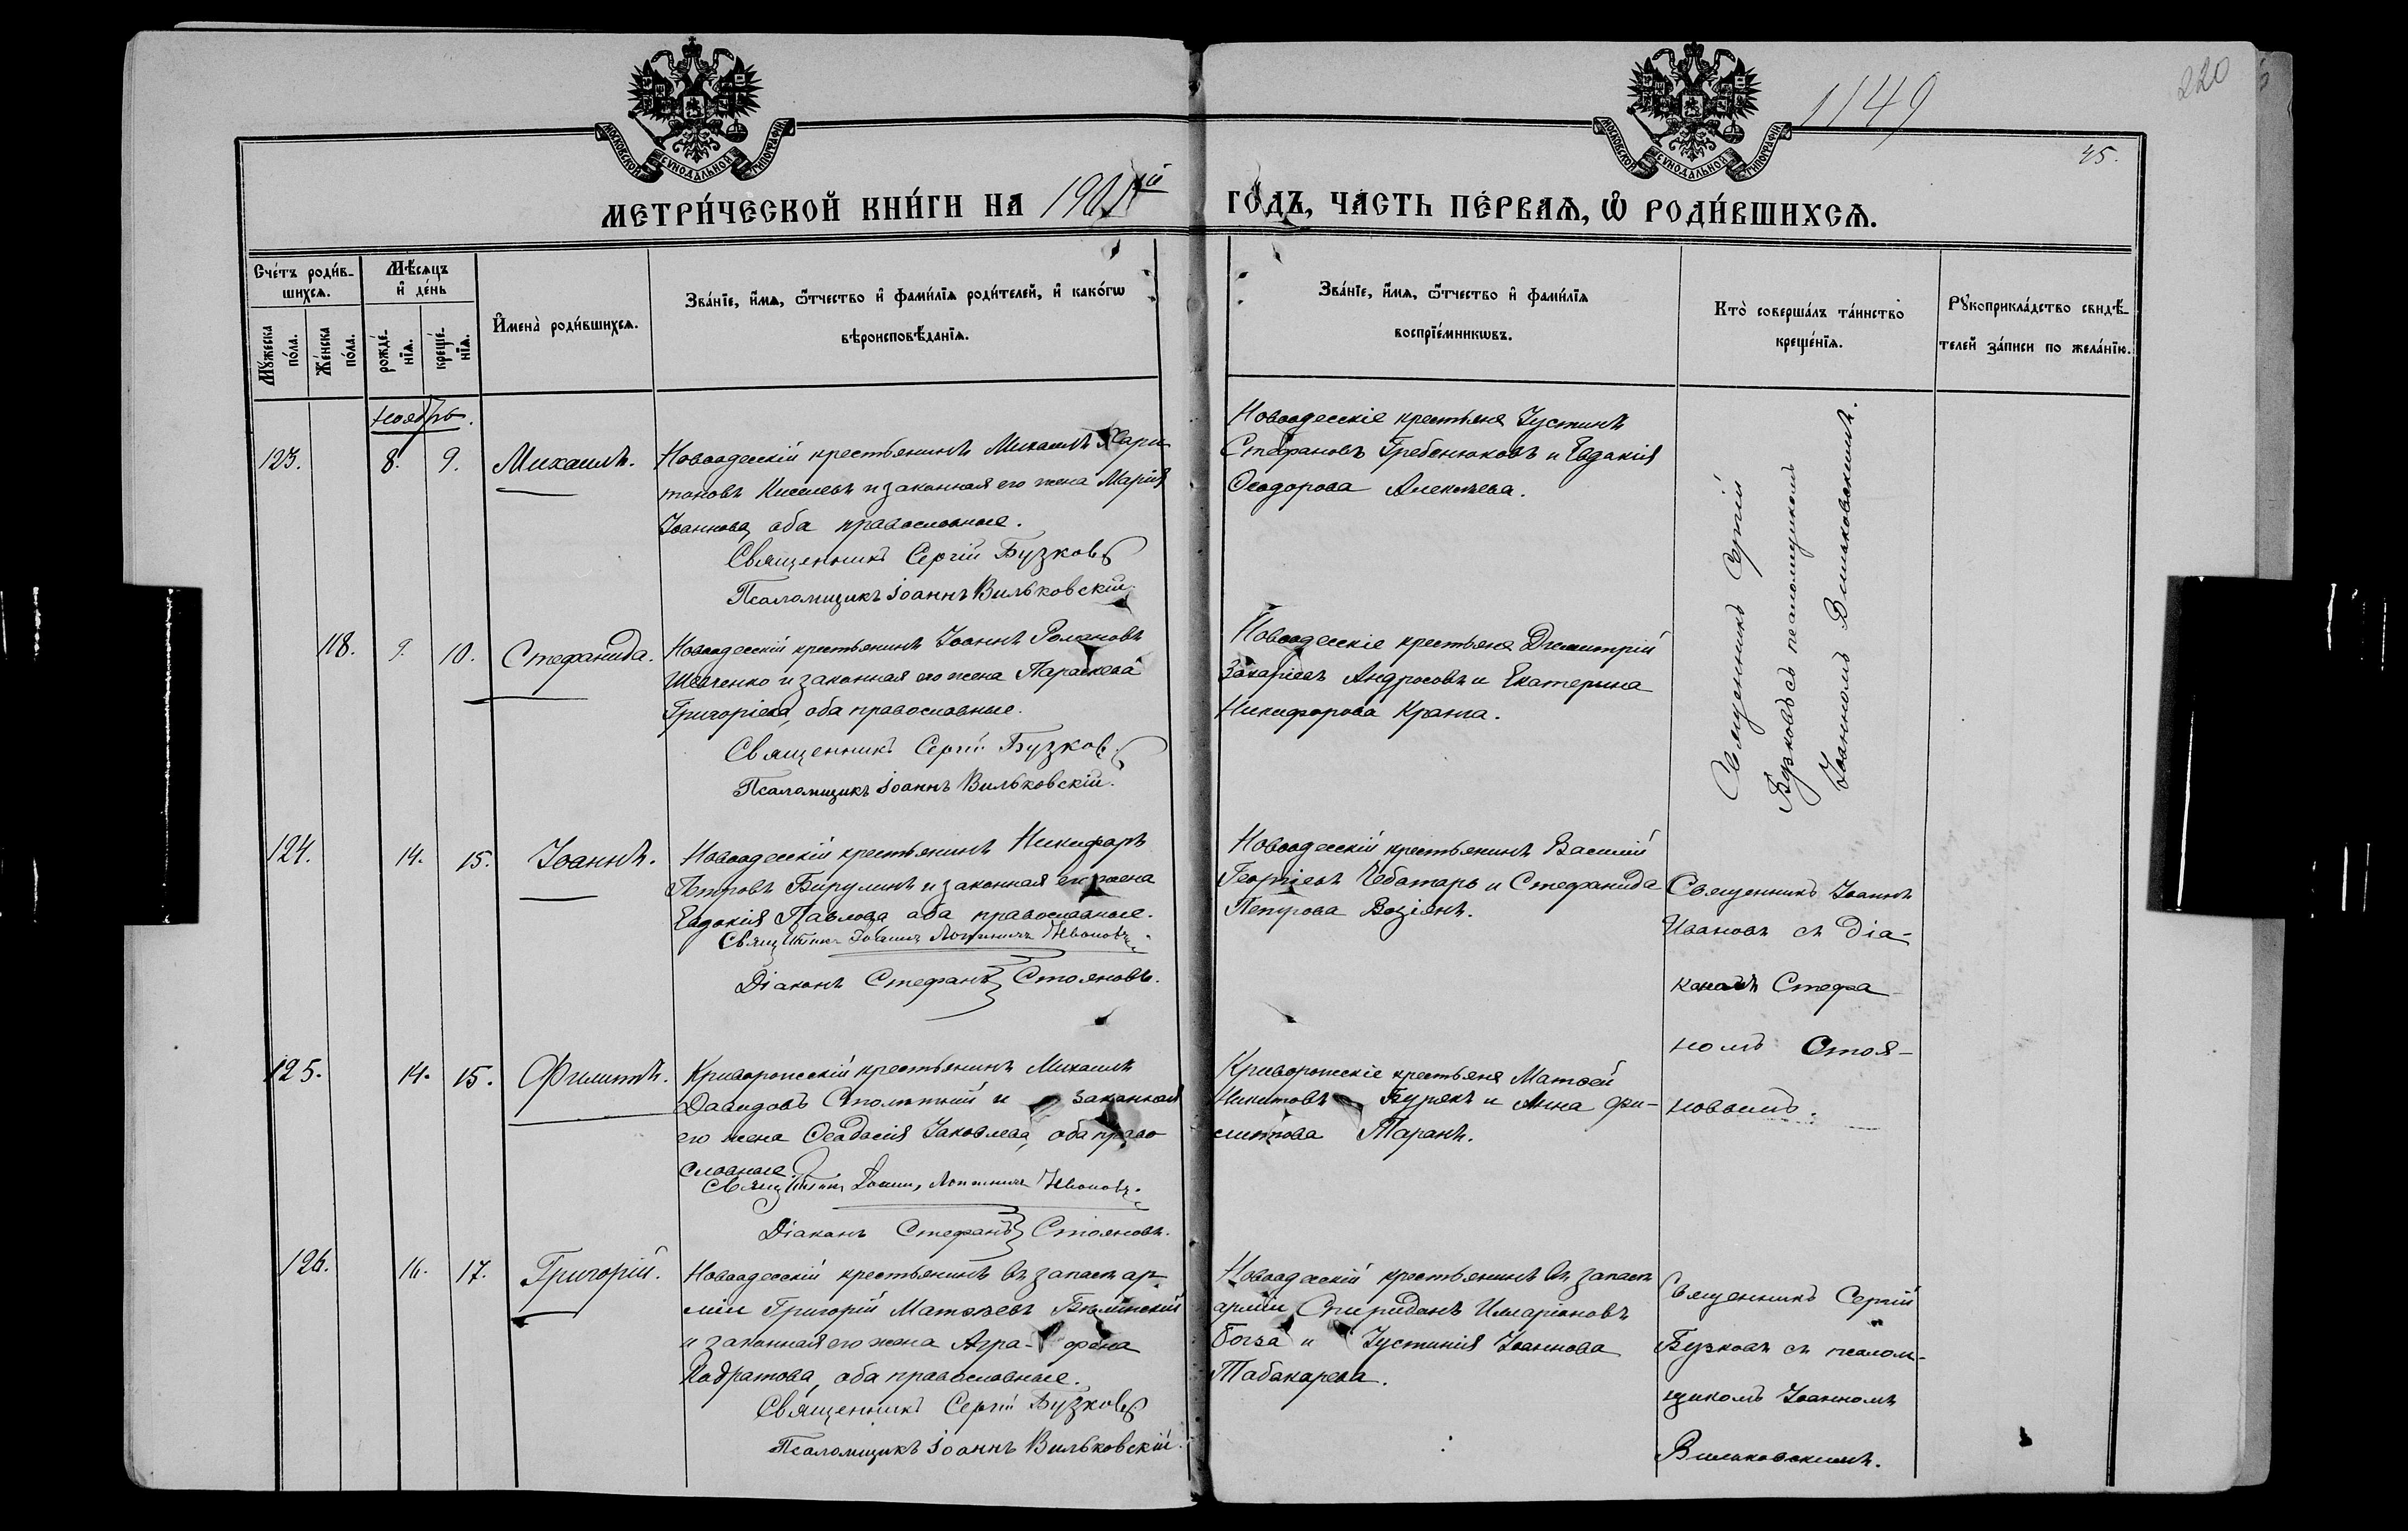 1149
220
45.
МОСКОВСКОЙ СѴНОДАЛЬНОЙ ТИПОГРАФІИ
МОСКОВСКОЙ СѴНОДАЛЬНОЙ ТИПОГРАФІИ
МЕТРИ́ЧЕСКОЙ КНИ́ГИ НА 1901й ГОДЪ, ЧАСТЬ ПЕ́РВАѦ, Ѡ РОДИ́ВШИХСѦ.
Сче́тъ роди́в-
шихсѧ.
Мꙋжеска по́ла.
Же́нска по́ла.
Мѣ́сѧцъ
и де́нь
рожде́-
нїѧ.
креще́-
нїѧ.
Имена̀ роди́вшихсѧ.
Зва́нїе, и́мѧ, ѻ́тчество и фами́лїѧ роди́телей, и како́гѡ
вѣроисповѣ́данїѧ.
Зва́нїе, и́мѧ, ѻ́тчество и фами́лїѧ
воспрїе́мникѡвъ.
Кто̀ соверша́лъ та́инство
креще́нїѧ.
Рꙋкоприкла́дство свидѣ́-
телей за́писи по жела́нїю.
Ноябрь.
123. 8. 9. Михаилъ.
Новоодесскій крестьянинъ Михаилъ Хари
тоновъ Киселевъ и законная его жена Марія
Іоаннова, оба православные.
Священникъ Сергій Бузковъ
Псаломщикъ Іоаннъ Вильковскій
Новоодесскіе крестьяне Іустинъ
Стефановъ Гребенюковъ и Евдокія
Ѳеодорова Алексѣева.
Священникъ Сергій
Бузковъ съ псаломщикомъ
Іоанномъ Вильковскимъ.
118. 9. 10. Стефанида.
Новоодесскій крестьянинъ Іоаннъ Романовъ
Шевченко и законная его жена Параскева
Григоріева, оба православные.
Священникъ Сергій Бузковъ
Псаломщикъ Іоаннъ Вильковскій.
Новоодесскіе крестьяне Димитрій
Захаріевъ Андросовъ и Екатерина
Никифорова Кранга.
124. 14. 15. Іоаннъ.
Новоодесскій крестьянинъ Никифоръ
Петровъ Бирулинъ и законная его жена
Евдокія Павлова оба православные.
Священникъ Іоаннъ Ивановъ.
Діаконъ Стефанъ Стояновъ.
Новоодесскій крестьянинъ Василій
Георгіевъ Чеботарь и Стефанида
Петрова Возіянъ.
Священникъ Іоаннъ
Ивановъ съ діа-
кономъ Стефа
номъ Стоя-
новымъ.
125. 14. 15. Филиппъ.
Криворожскій крестьянинъ Михаилъ
Давидовъ Столѣтній и законная
его жена Ѳеодосія Іаковлева, оба право
славные.
Священникъ Іоаннъ Ивановъ.
Діаконъ Стефанъ Стояновъ.
Криворожскіе крестьяне Матѳей
Никитовъ Бурякъ и Анна Фи-
липпова Таранъ.
126. 16. 17. Григорій.
Новоодесскій крестьянинъ въ запасѣ ар-
міи Григорій Матѳѣевъ Бѣлинскій
и законная его жена Агра- фена
Кодратова, оба православные.
Священникъ Сергій Бузковъ
Псаломщикъ Іоаннъ Вильковскій.
Новоодесскій крестьянинъ въ запасѣ
арміи Спиридонъ Иларіоновъ
Богза и Іустинія Іоаннова
Табакарева.
Священникъ Сергій
Бузковъ съ псалом-
щикомъ Іоанномъ
Вильковскимъ.